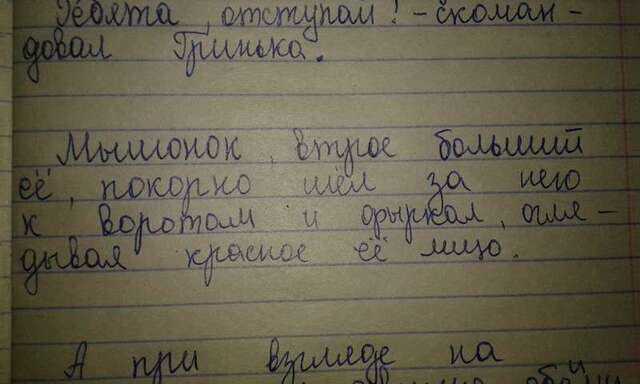 Ребята, отступай! - скоман-
довал Гринька.
Мышонок, втрое больший
её, покорно шёл за него
к воротам и фыркал, огля-
дывая красное её лицо.
А при взгляде на